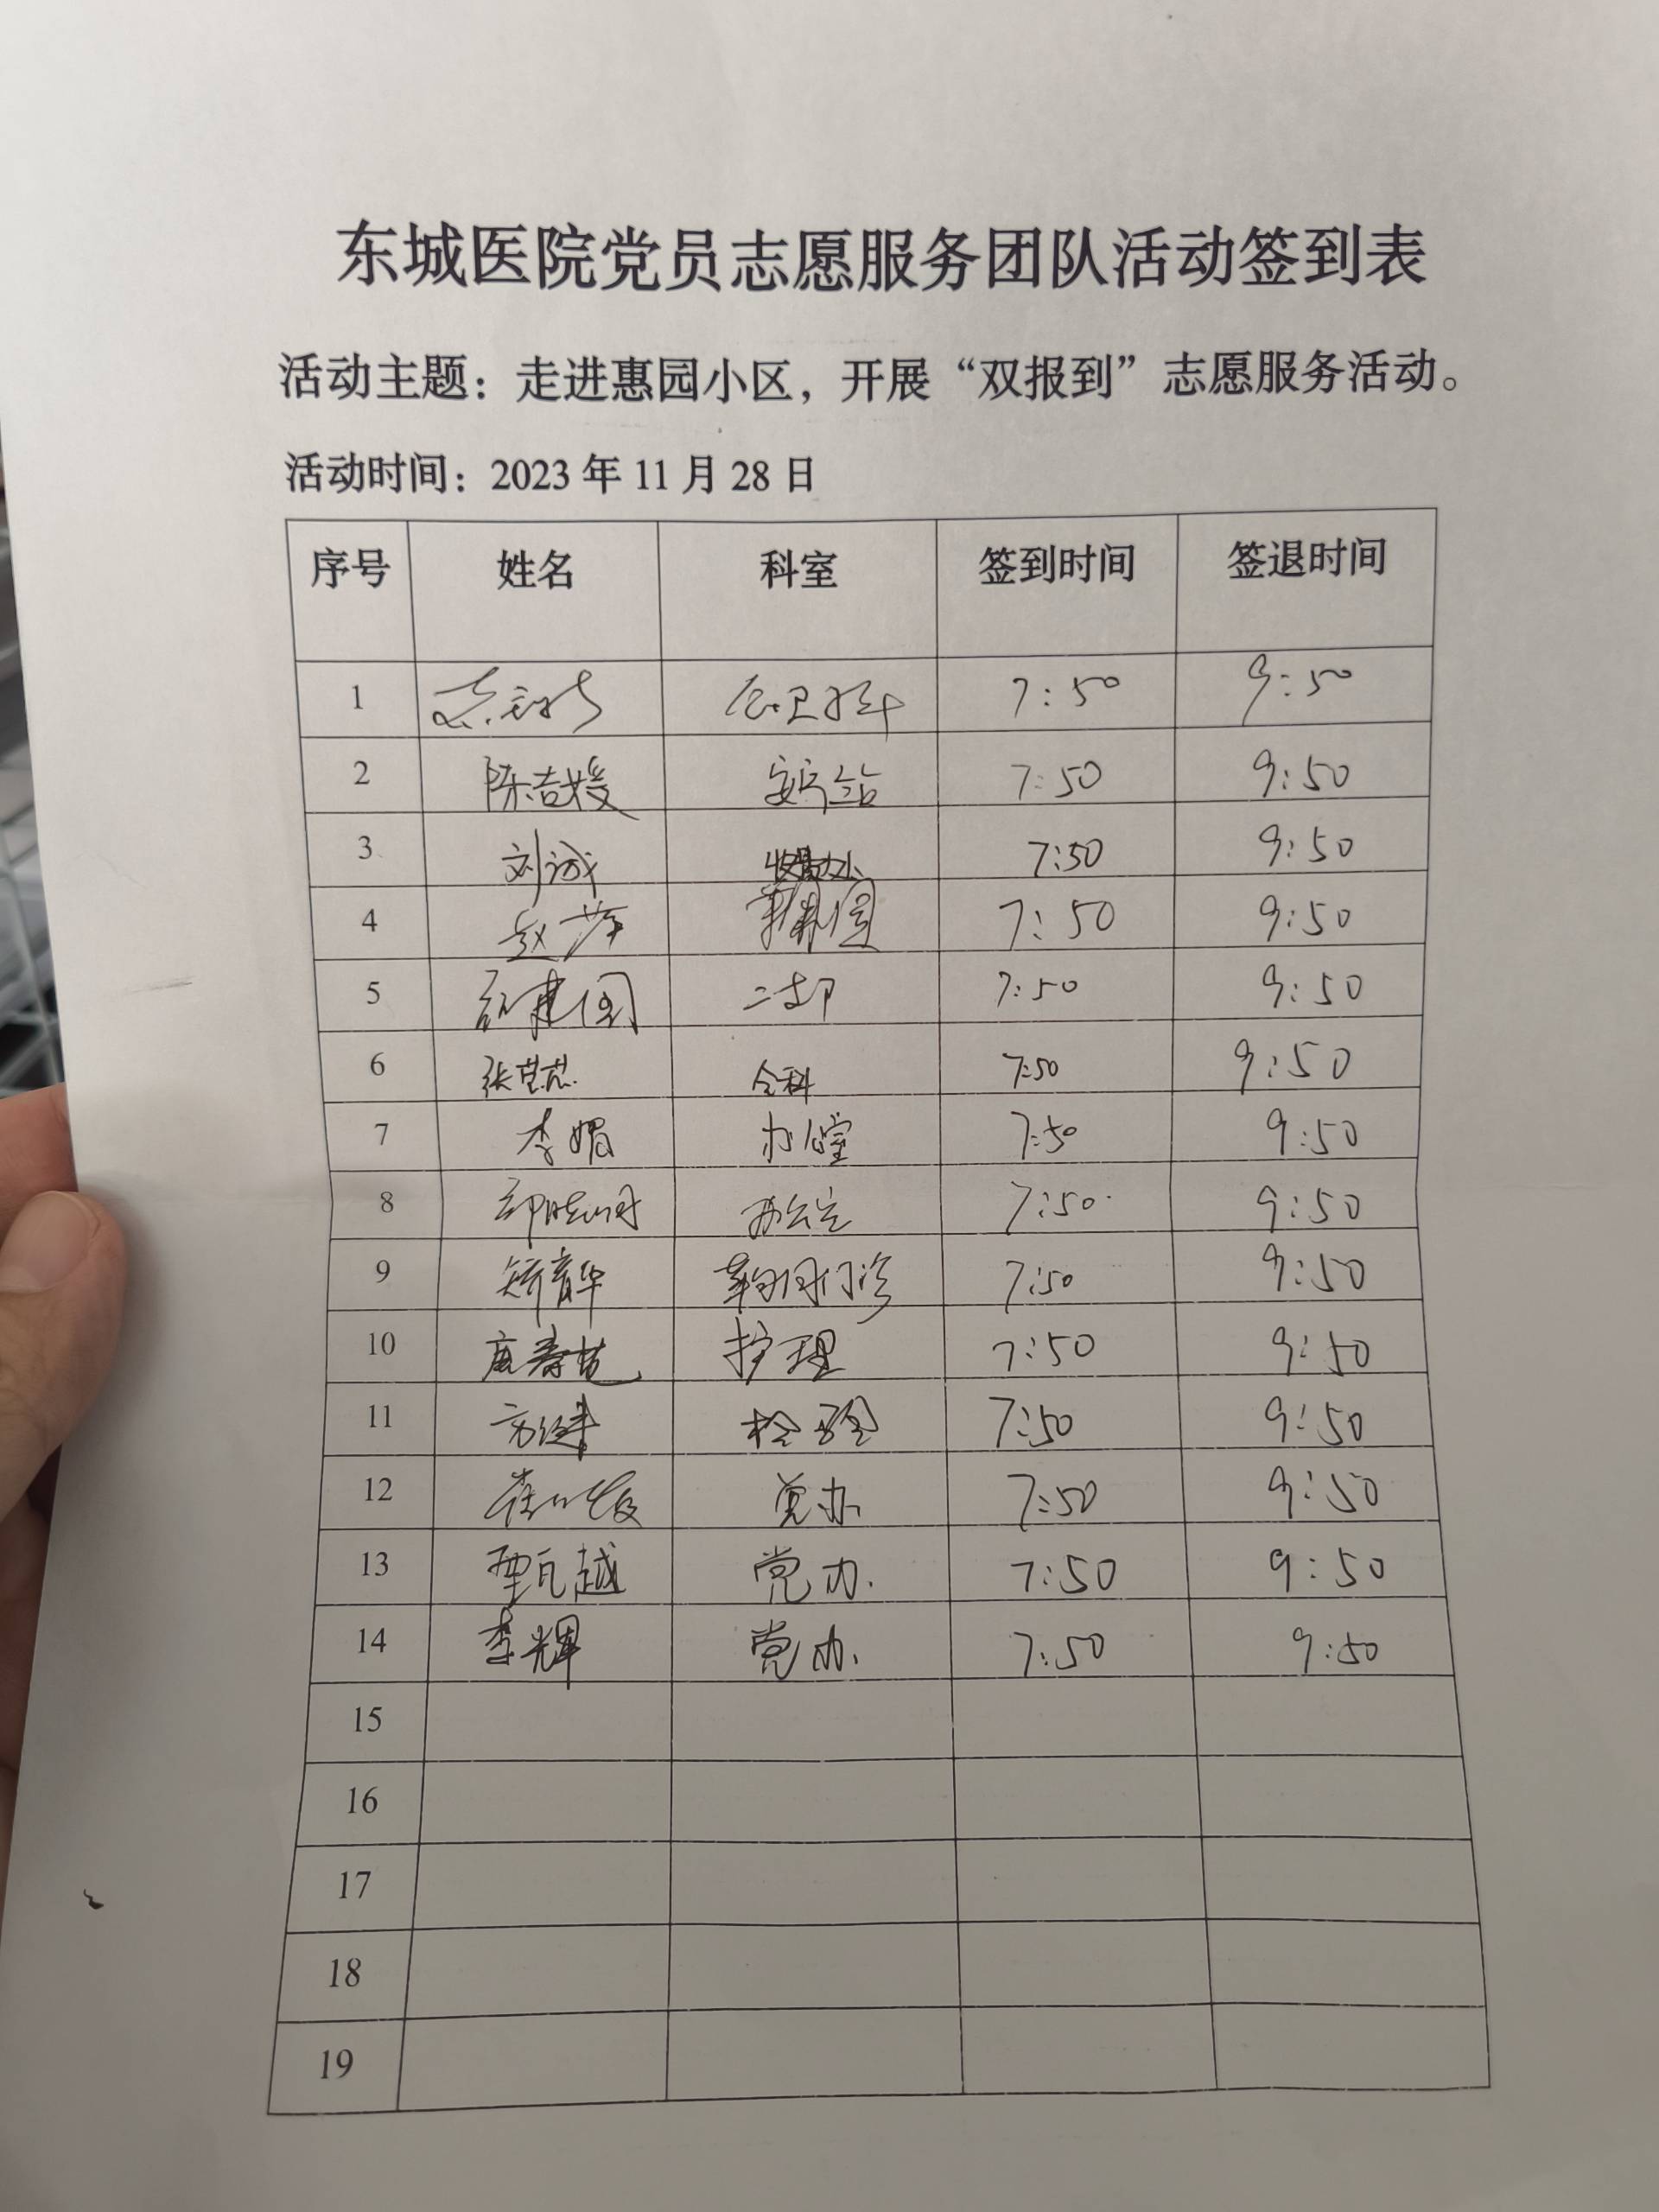 东城医院党员志愿服务团队活动签到表
活动主题：走进惠园小区，开展“双报到”志愿服务活动。
活动时间：2023年11月28日
序号 姓名 科室 签到时间 签退时间
1 7:50 9:50
2 陈吉媛 7:50 9:50
3 刘诚 7:50 9:50
4 赵萍 7:50 9:50
5 7:50 9:50
6 全科 7:50 9:50
7 李媚 办公室 7:50 9:50
8 办公室 7:50 9:50
9 矫青华 门诊 7:50 9:50
10 护理 7:50 9:50
11 7:50 9:50
12 党办 7:50 9:50
13 甄越 党办. 7:50 9:50
14 李辉 党办. 7:50 9:50
15
16
17
18
19